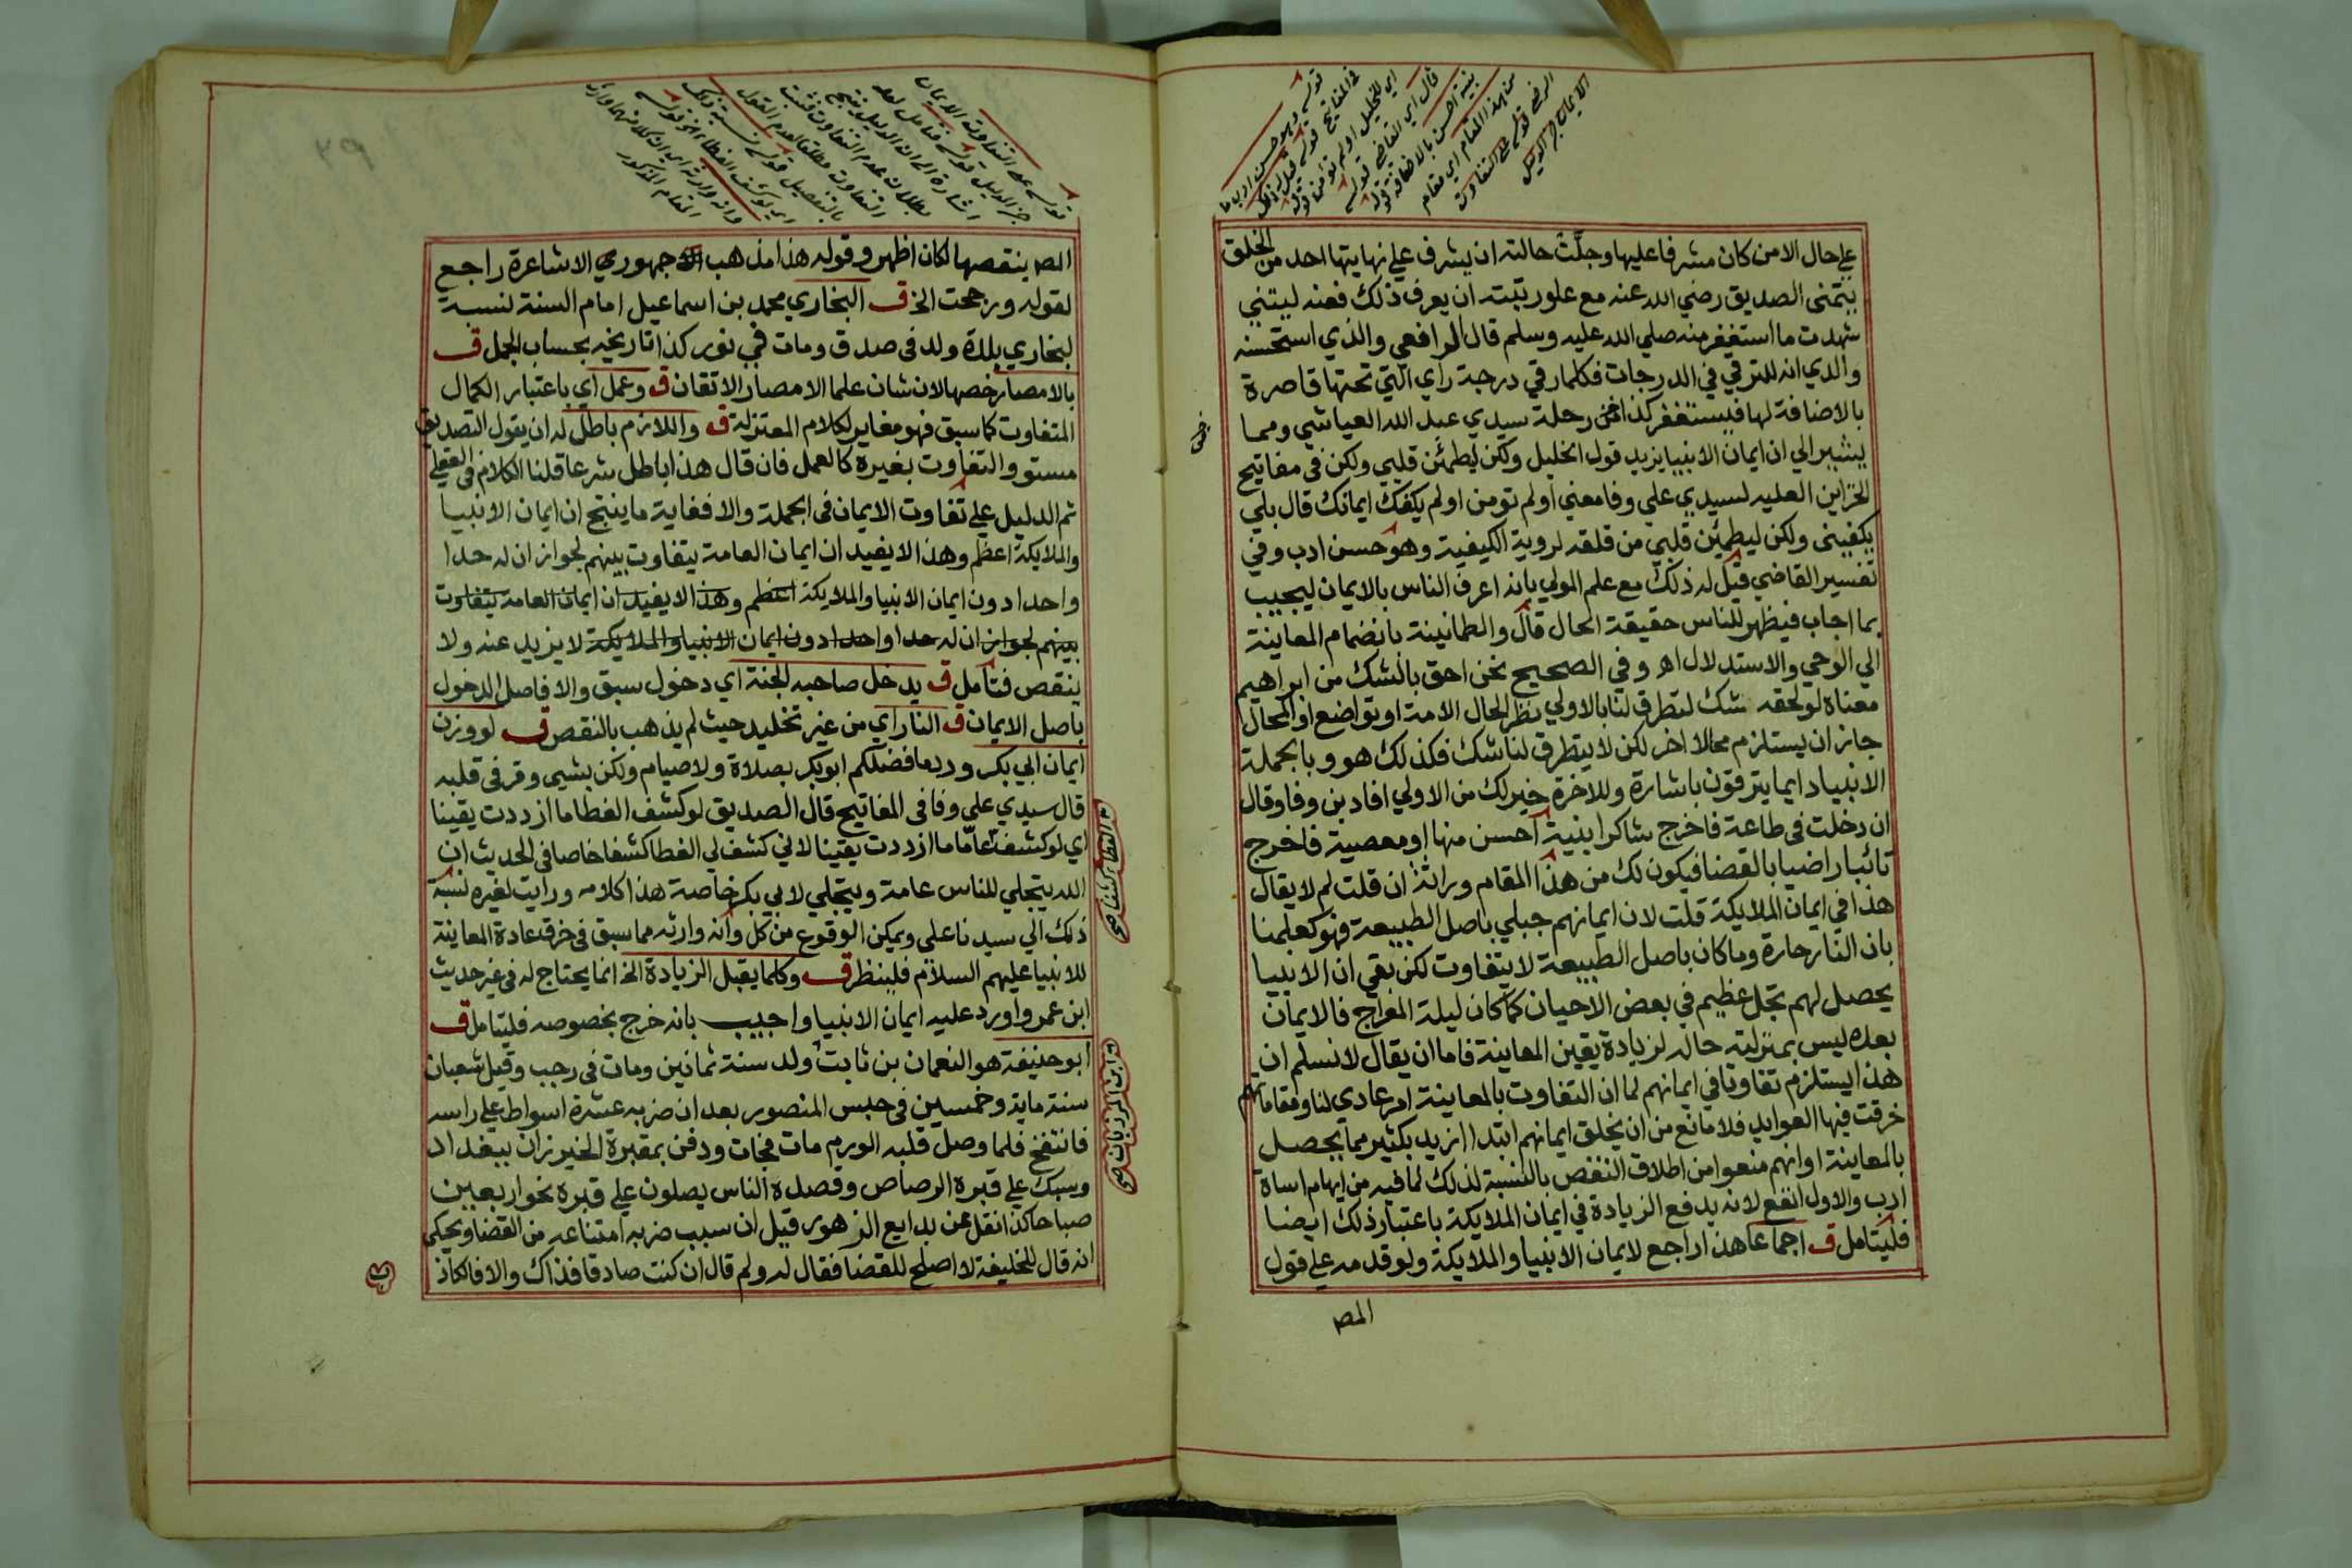 علي حال الامن كان مشرفا عليها وجلّت حالته ان يشرف علي نهايتها احد من الخلق
يتمنى الصديق رضي الله عنه مع علو رتبته ان يعرف ذلك فعنه ليتني
شهدت ما استغفر منه صلي الله عليه وسلم قال الرافعي والذي استحسنه
والدي انه للترقي في الدرجات فكلما رقي درجة راي التي تحتها قاصرة
بالاضافة لها فيستغفر كذا في رحلة سيدي عبد الله العياشي ومما
يشير الي ان ايمان الانبيا يزيد قول الخليل ولكن ليطمئن قلبي ولكن في مفاتيح
الخزاين العليه لسيدي علي وفا معني اولم تومن اولم يكفك ايمانك قال بلي
يكفيني ولكن ليطمئن قلبي من قلقه لروية الكيفية وهو حسن ادب وفي
تفسير القاضي قيل له ذلك مع علم المولي بانه اعرف الناس بالايمان ليجيب
بما اجاب فيظهر للناس حقيقة الحال قال والطمانينة بانضمام المعاينة
الي الوحي والاستدلال اهـ وفي الصحيح نحن احق بالشك من ابراهيم
معناه لو لحقه شك لتطرق لنا بالاولي نظرا لحال الامة او تواضع او المحال
جاز ان يستلزم محالا اخر لكن لا يتطرق لنا شك فكذلك هو وبالجملة
الانبيا دايما يترقون باشارة وللاخرة خير لك من الاولي افاد بن وفا وقال
ان دخلت في طاعة فاخرج شاكرا بنية احسن منها او معصية فاخرج
تائبا راضيا بالقضا فيكون لك من هذا المقام وراثة ان قلت لم لا يقال
هذا في ايمان الملايكة قلت لان ايمانهم جبلي باصل الطبيعة فهو كعلمنا
بان النار حارة وما كان باصل الطبيعة لا يتفاوت لكن بقي ان الانبيا
يحصل لهم تجل عظيم في بعض الاحيان كما كان ليلة المعراج فالايمان
بعده ليس بمنزلته حاله لزيادة يقين المعاينة فاما ان يقال لا نسلم ان
هذا يستلزم تفاوتا في ايمانهم لما ان التفاوت بالمعاينة امر عادي لنا ومقاماتهم
خرقت فيها العوايد فلا مانع من ان يخلق ايمانهم ابتدا ازيد بكثير مما يحصل
بالمعاينة او انهم منعوا من اطلاق النقص بالنسبة لذلك لما فيه من ايهام اساة
ادب والاول انفع لانه يدفع الزيادة في ايمان الملايكة باعتبار ذلك ايضا
فليتامل ق اجماعا هذا راجع لايمان الانبيا والملايكة ولو قدمه علي قول
المص
المص ينقصها لكان اظهر وقوله هذا مذهب جمهوري الاشاعرة راجع
لقوله ورجحت الخ ق البخاري محمد بن اسماعيل امام السنة نسبة
لبخاري بلدة ولد في صدق ومات في نور كذا تاريخيه بحساب الجمل ق
بالامصار خصها لان شان علما الامصار الاتقان ق وعمل اي باعتبار الكمال
المتفاوت كما سبق فهو مغاير لكلام المعتزلة ق واللازم باطل له ان يقول التصديق
مستو والتفاوت بغيره كالعمل فان قال هذا باطل شرعا قلنا الكلام في العقلي
ثم الدليل علي تفاوت الايمان في الجملة والا فغاية ما ينتج ان ايمان الانبيا
والملايكة اعظم وهذا لا يفيد ان ايمان العامة يتفاوت بينهم لجواز ان له حدا
واحدا دون ايمان الانبيا والملايكة اعظم وهذا لا يفيد ان ايمان العامة يتفاوت
بينهم لجواز ان له حدا واحدا دون ايمان الانبيا والملايكة لا يزيد عنه ولا
ينقص فتامل ق يدخل صاحبه الجنة اي دخول سبق والا فاصل الدخول
باصل الايمان ق النار اي من غير تخليد حيث لم يذهب بالنقص ق لو وزن
ايمان ابي بكر ورد ما فضلكم ابو بكر بصلاة ولا صيام ولكن بشيى وقر في قلبه
قال سيدي علي وفا في المفاتيح قال الصديق لو كشف الغطا ما ازددت يقينا
اي لو كشف عامّا ما ازددت يقينا لاني كشف لي الغطا كشفا خاصا في الحديث ان
الله يتجلي للناس عامة ويتجلي لابي بكر خاصة هذا كلامه ورايت لغيره نسبة
ذلك الي سيدنا علي ويمكن الوقوع من كل وانه وارثه مما سبق في خرق عادة المعاينة
للانبيا عليهم السلام فلينظر ق وكلما يقبل الزيادة الخ انما يحتاج له في غير حديث
ابن عمر واورد عليه ايمان الانبيا واجيب بانه خرج بخصوصه فليتامل ق
ابو حنيفة هو النعمان بن ثابت ولد سنة ثمانين ومات في رجب وقيل شعبان
سنة ماية وخمسين في حبس المنصور بعد ان ضربه عشرة اسواط علي راسه
فانتفخ فلما وصل قلبه الورم مات فجات ودفن بمقبرة الخيزران ببغداد
وسبك علي قبره الرصاص وقصده الناس يصلون علي قبره نحو اربعين
صباحا كذا نقل عن بدايع الزهور قيل ان سبب ضربه امتناعه من القضا ويحكى
انه قال للخليفة لا اصلح للقضا فقال له ولم قال ان كنت صادقا فذاك والا فالكاذ